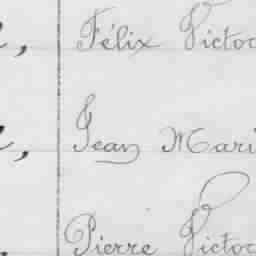 , Félix Victor
, Jean Mari
Pierre Victor